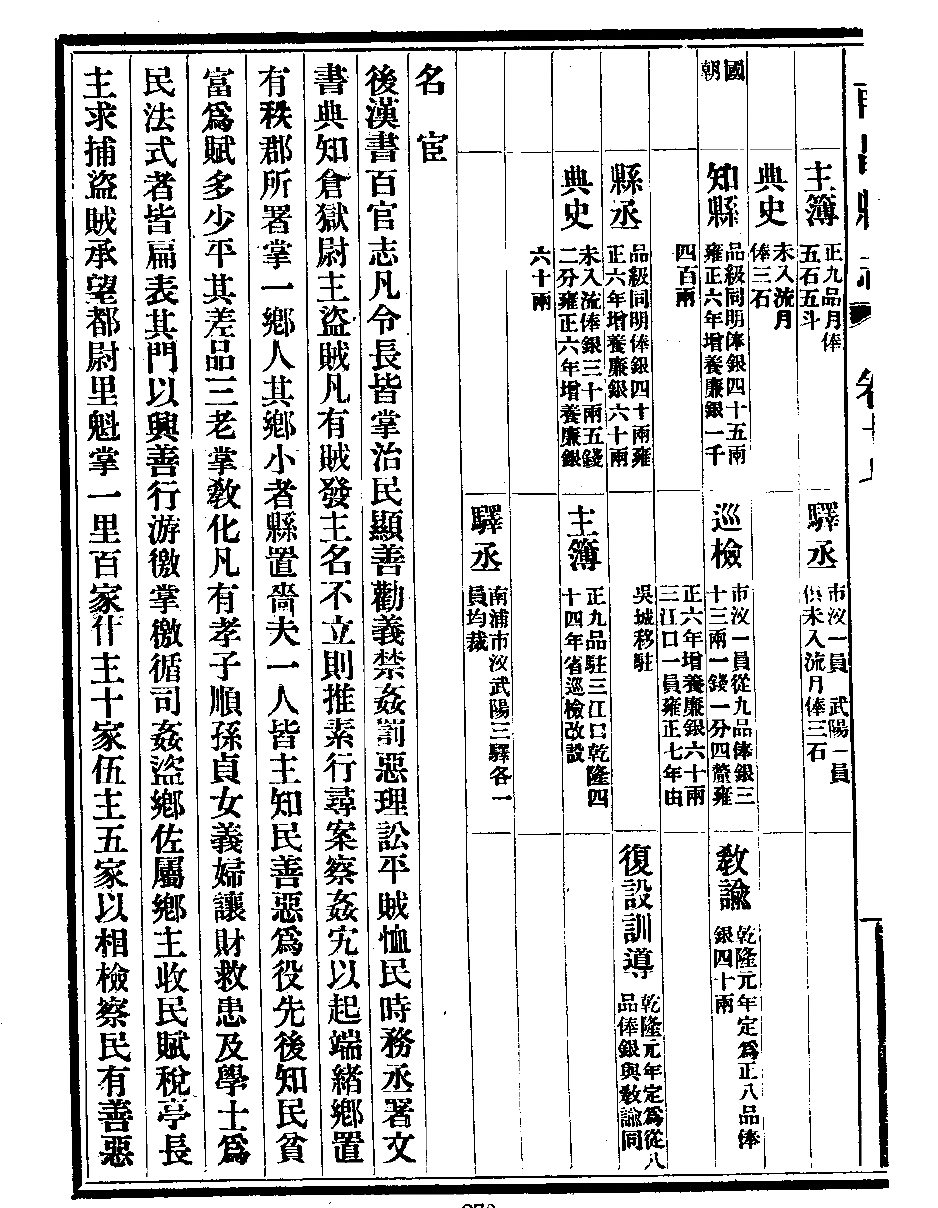 主簿
正九品月俸
五石五斗
驛丞
市汊一員 武陽一員
俱未入流月俸三石
典史
未入流月
俸三石
國
朝
知縣
品級同明俸銀四十五兩
雍正六年增養廉銀一千
四百兩
巡檢
市汊一員從九品俸銀三
十三兩一錢一分四釐雍
正六年增養廉銀六十兩
三江口一員雍正七年由
吳城移駐
教諭
乾隆元年定爲正八品俸
銀四十兩
縣丞
品級同明俸銀四十兩雍
正六年增養廉銀六十兩
復設訓導
乾隆元年定爲從八
品俸銀與敎諭同
典史
未入流俸銀三十兩五錢
二分雍正六年增養廉銀
六十兩
主簿
正九品駐三江口乾隆四
十四年省巡檢改設
驛丞
南浦市汊武陽三驛各一
員均裁
名宦
後漢書百官志凡令長皆掌治民顯善勸義禁姦罰惡理訟平賊恤民時務丞署文
書典知倉獄尉主盜賊凡有賊發主名不立則推索行尋案察姦宄以起端緒鄉置
有秩郡所署掌一鄉人其鄉小者縣置嗇夫一人皆主知民善惡爲役先後知民貧
富爲賦多少平其差品三老掌敎化凡有孝子順孫貞女義婦讓財救患及學士爲
民法式者皆扁表其門以興善行游徼掌徼循司姦盜鄉佐屬鄉主收民賦稅亭長
主求捕盜賊承望都尉里魁掌一里百家什主十家伍主五家以相檢察民有善惡